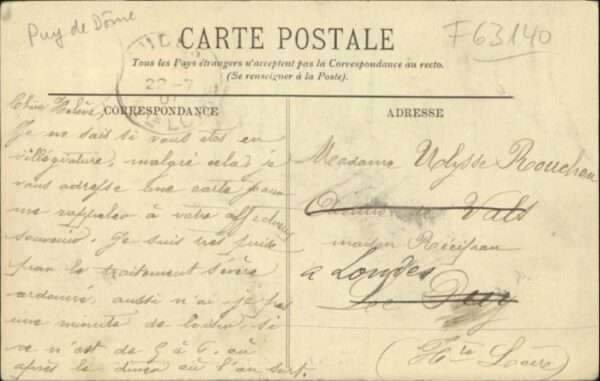 Puy de Dôme
F63140
CARTE POSTALE
Tous les Pays étrangers n'acceptent pas la Correspondance au recto.
(Se renseigner à la Poste).
CORRESPONDANCE
ADRESSE
Chère Hélène,
Je ne sais si vous êtes en
villégiature, malgré cela je
vous adresse une carte pour
me rappeler à votre affectueux
souvenir. Je suis très prise
par le traitement sévère
ordonné, aussi n'ai je pas
une minute de loisir, si
ce n'est de 5 à 6, ou
après le dîner où l'on sort.
Madame Ulysse Rouchon
Vals
maison
à Loudes
Le Puy
(Hte Loire)